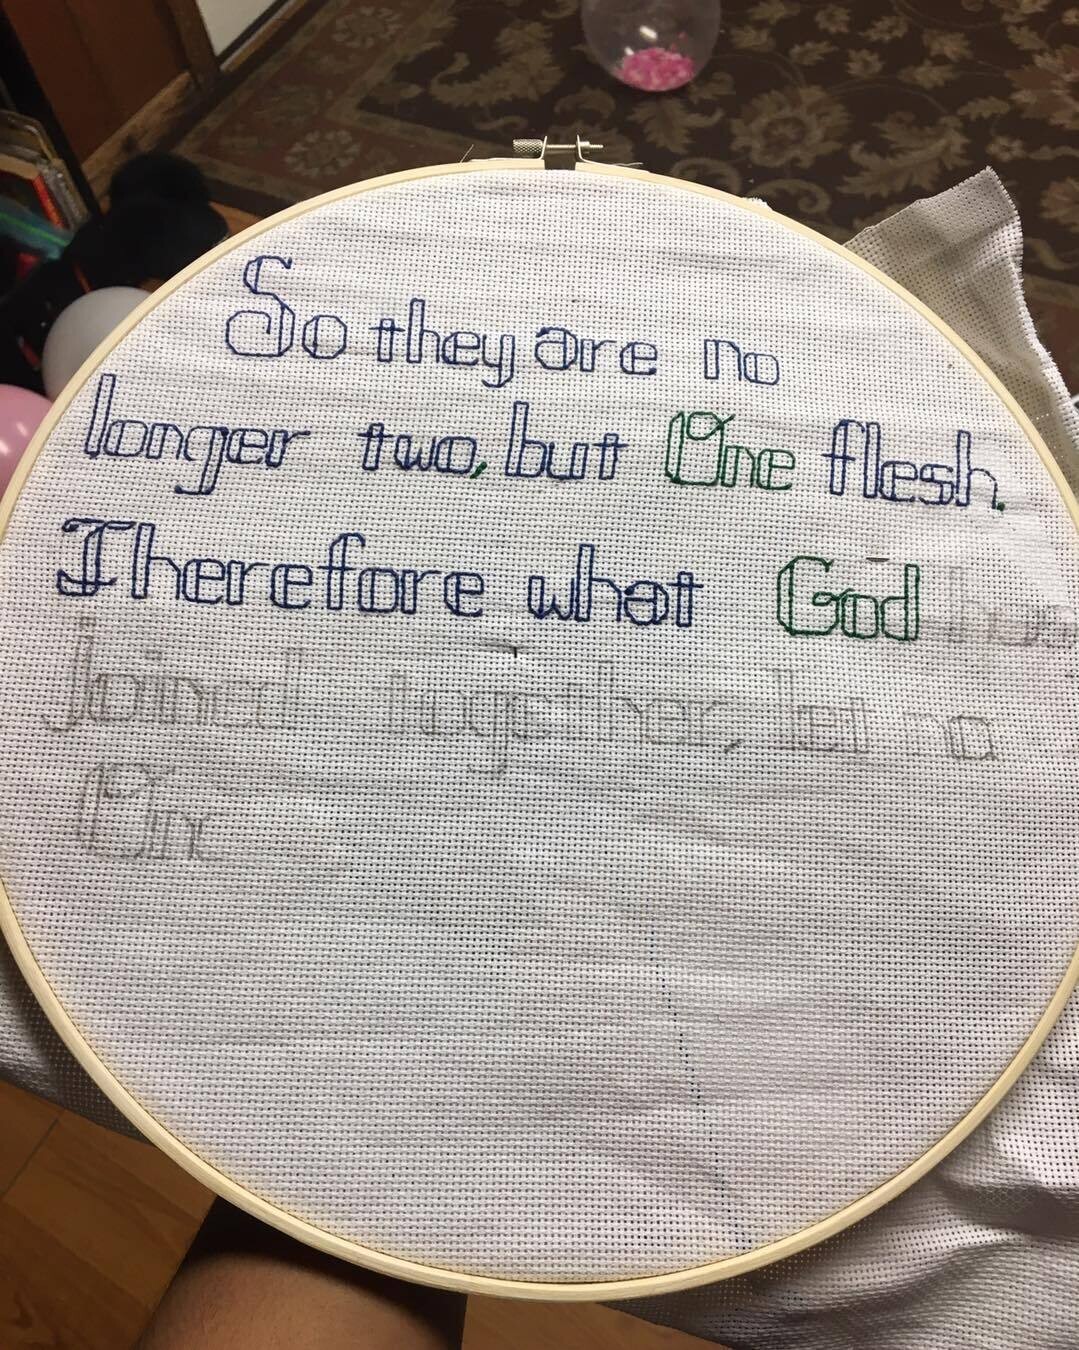 So they are no
longer two, but One flesh.
Therefore what God has
joined together, let no
One